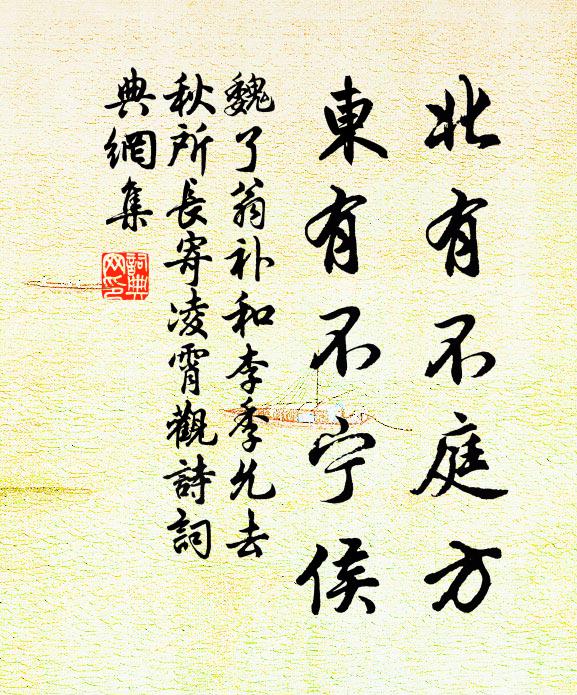 北有不庭方
東有不宁侯
魏了翁补和李季允去
秋所長寄凌霄觀詩詞
典網集
詞典网印